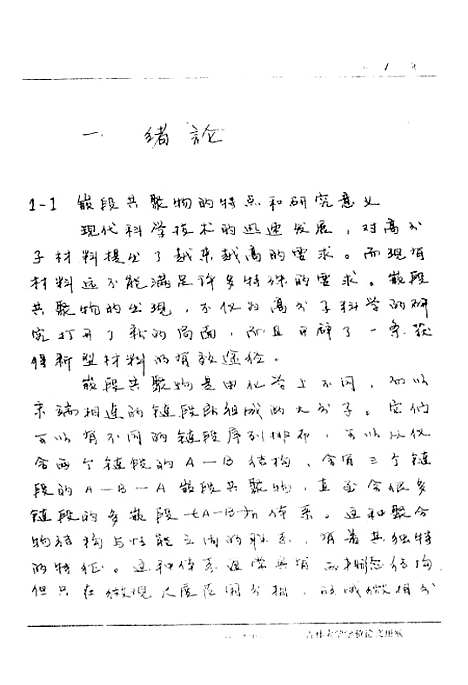 一、绪论
1-1 嵌段共聚物的特点和研究意义
现代科学技术的迅速发展，对高分
子材料提出了越来越高的要求。而现有
材料远不能满足许多特殊的要求。嵌段
共聚物的出现，不仅为高分子科学的研
究打开了新的局面，而且开辟了一条获
得新型材料的有效途径。
嵌段共聚物是由化学上不同，而以
末端相连的链段所组成的大分子。它们
可以有不同的链段序列排布，可以从仅
含两个链段的A—B结构，含有三个链
段的A—B—A嵌段共聚物，直至含很多
链段的多嵌段(A-B)n体系。这种聚合
物结构与性能之间的联系，有着其独特
的特征。这种体系通常具有两相形态结构
但只在微观尺度范围分相，形成微相分
吉林大学学位论文用纸